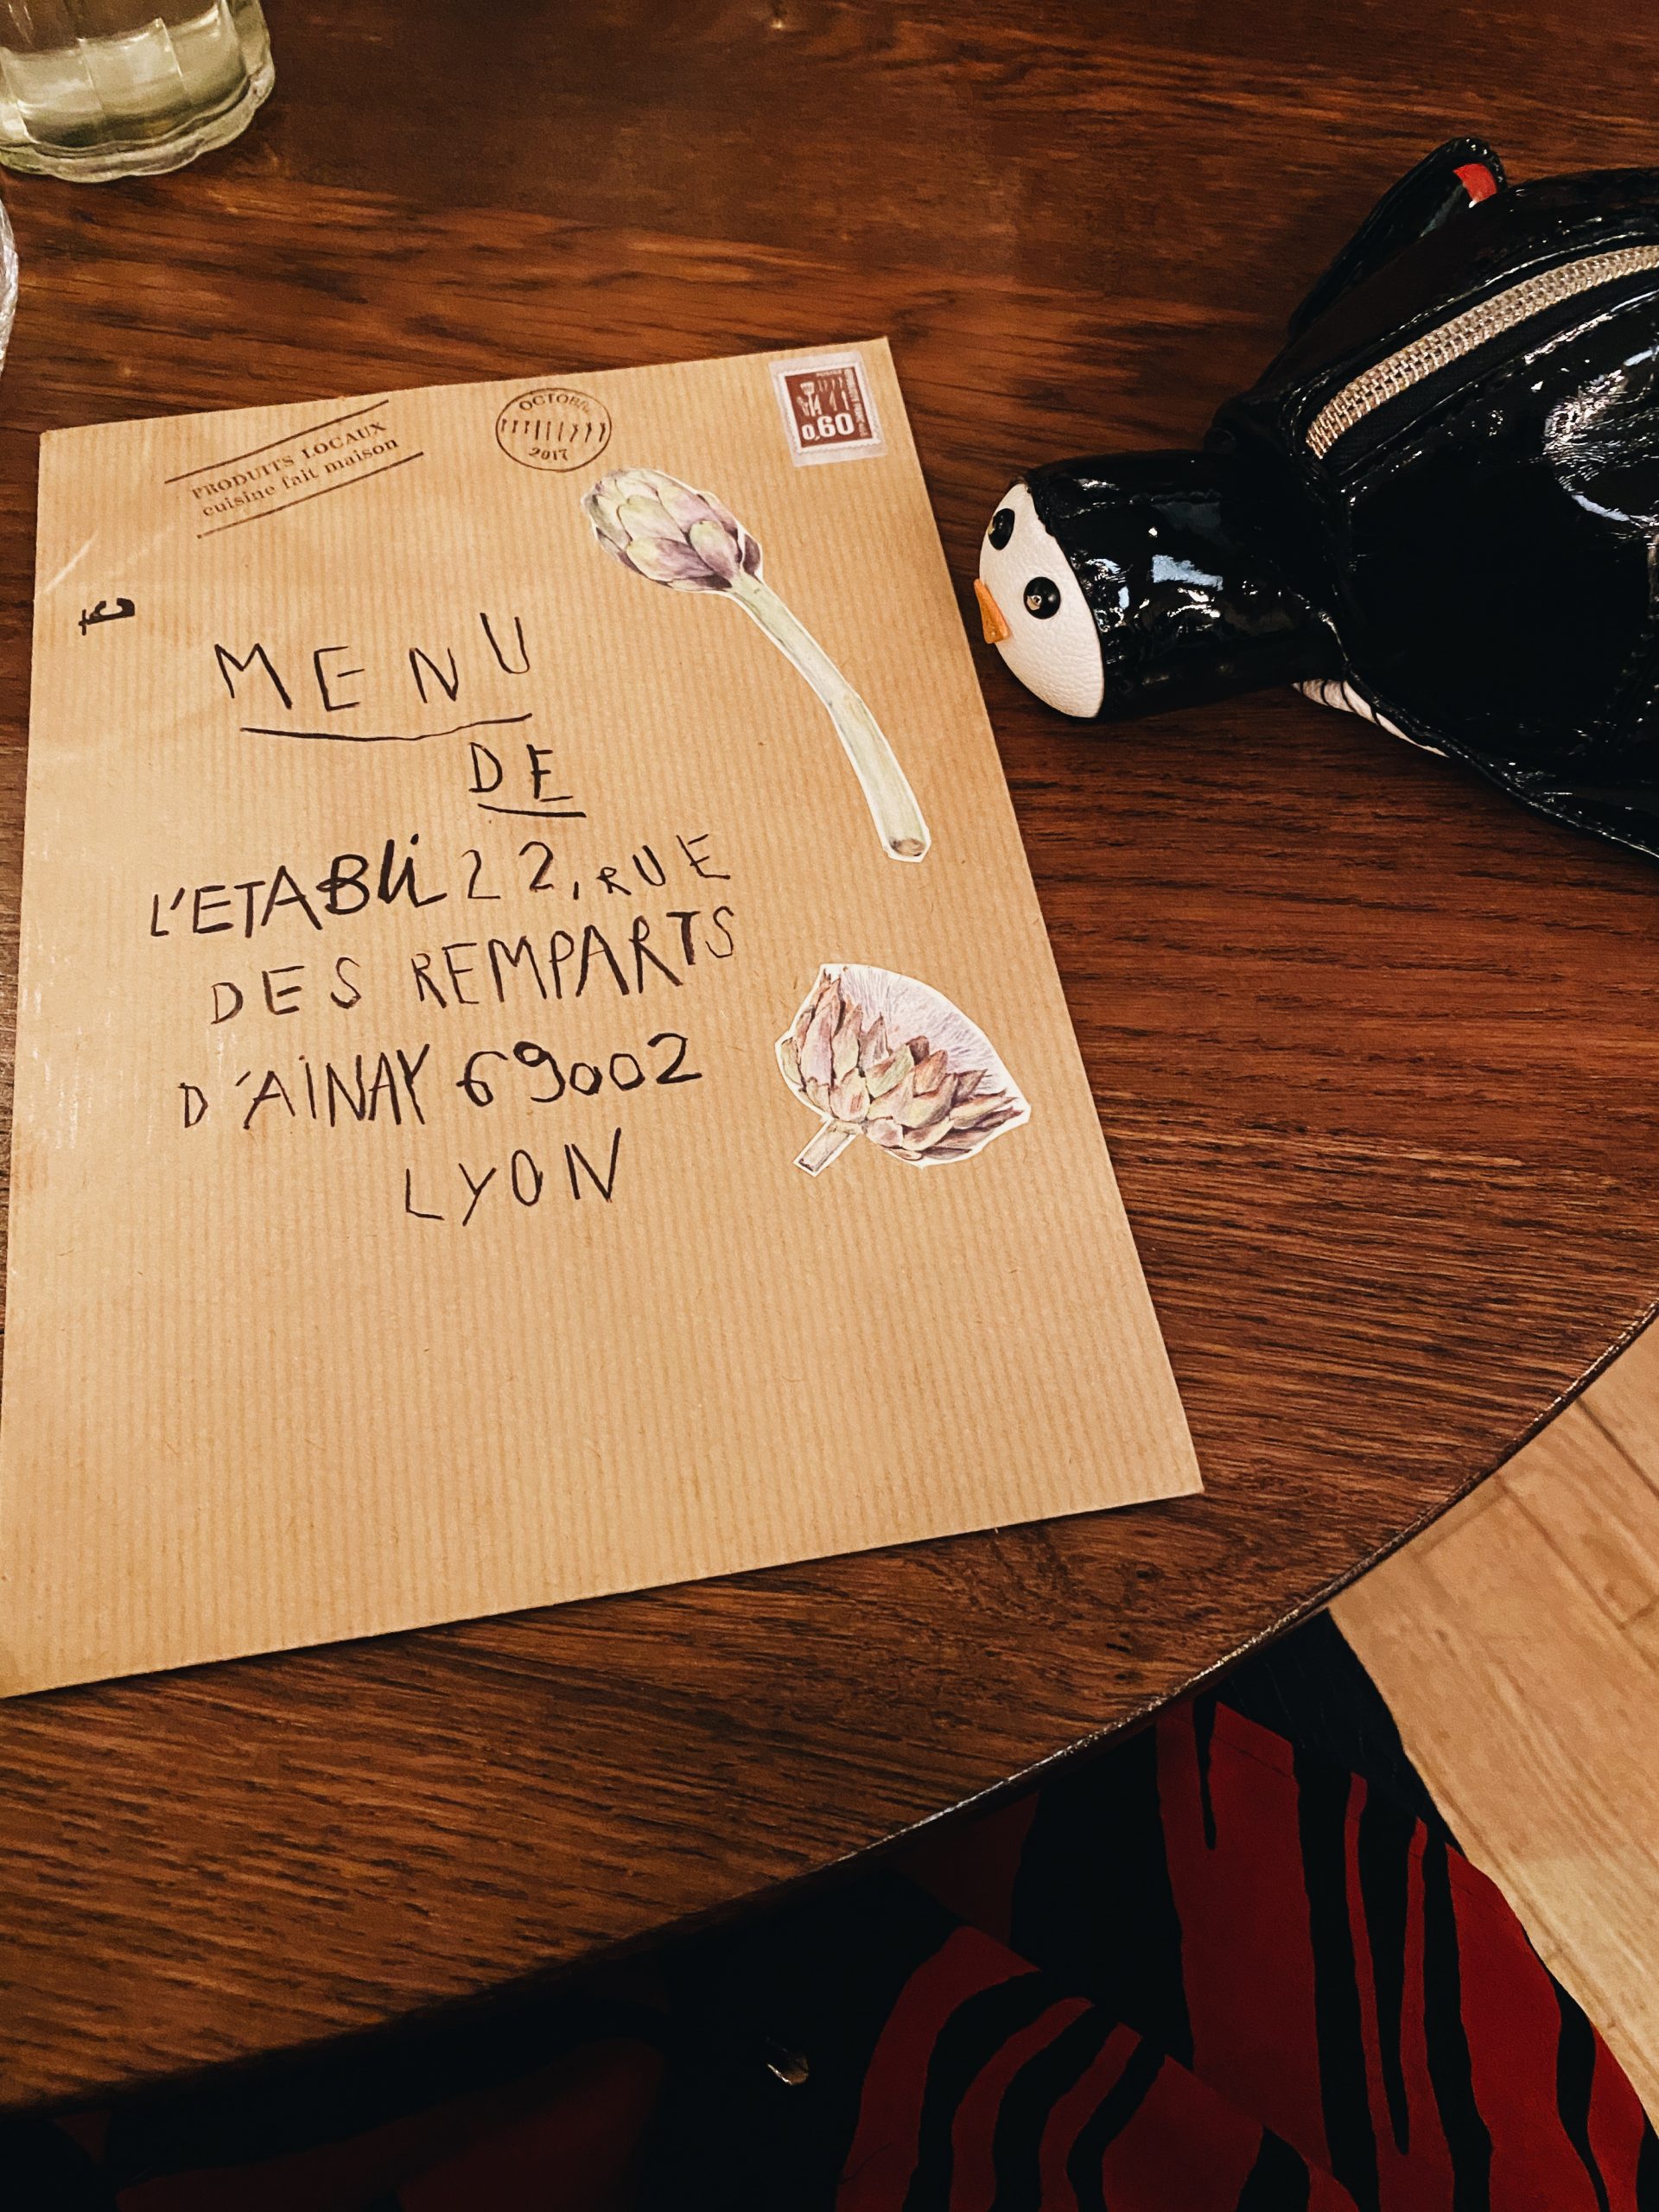 PRODUITS LOCAUX
cuisine fait maison
OCTOBRE
2017
0,60
MENU
DE
L'ETABLi 22, RUE
DES REMPARTS
D'AiNAY 69002
LYON